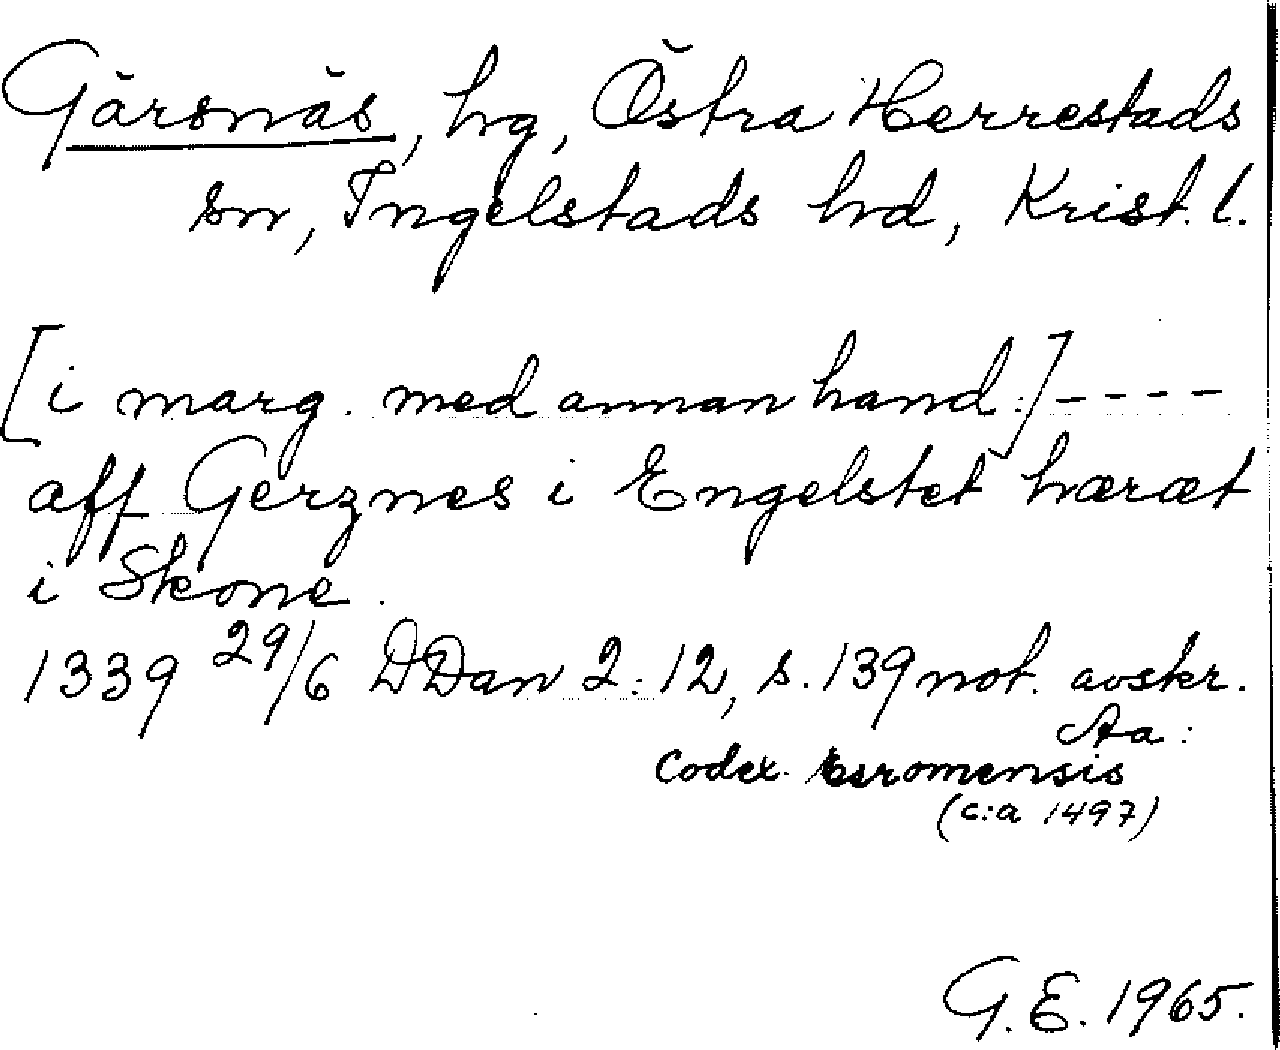 Gärsnäs, hg, Östra Herrestads
sn, Ingelstads hd, Krist. l.
[i marg. med annan hand:] ----
aff Gerznes i Engelstet hæræt
i Skone.
1339 29/6 DDan 2:12, s. 139 not. avskr.
Aa:
Codex Esromensis
(c:a 1497)
G.E. 1965.